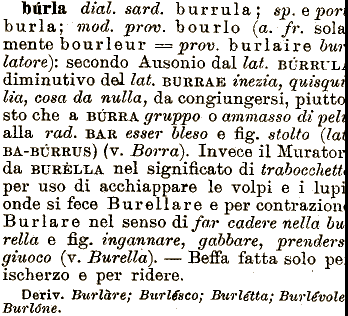 búrla dial. sard. burrula; sp. e por
burla; mod. prov. bourlo (a. fr. sola
mente bourleur = prov. burlaire bur
latore): secondo Ausonio dal lat. BÚRRUL
diminutivo del lat. BURRAE inezia, quisqui
lia, cosa da nulla, da congiungersi, piutto
sto che a BÚRRA gruppo o ammasso di peli
alla rad. BAR esser bleso e fig. stolto (lat
BA-BÚRRUS) (v. Borra). Invece il Murator
da BURÈLLA nel significato di trabocchett
per uso di acchiappare le volpi e i lupi
onde si fece Burellare e per contrazion
Burlare nel senso di far cadere nella bu
rella e fig. ingannare, gabbare, prenders
giuoco (v. Burella). — Beffa fatta solo pe
ischerzo e per ridere.
Deriv. Burlàre; Burlésco; Burlétta; Burlévole
Burlóne.